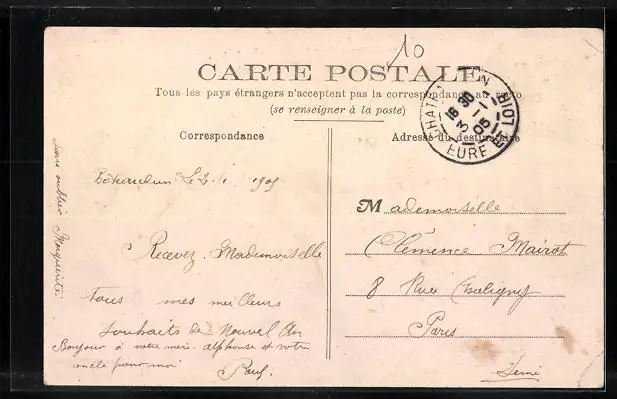 10
CARTE POSTALE
Tous les pays étrangers n'acceptent pas la correspondance au recto.
(se renseigner à la poste)
Correspondance
Adresse du destinataire
CHATEAUDUN
16 30
3 -1
05
EURE ET LOIR
Le 2/1 1905
Recevez Mademoiselle
tous mes meilleurs
souhaits de Nouvel An
Bonjour à votre mère alphonse et votre
oncle pour moi
Paul
sans oublier Marguerite
Mademoiselle
Clémence Mairot
8 Rue
Paris